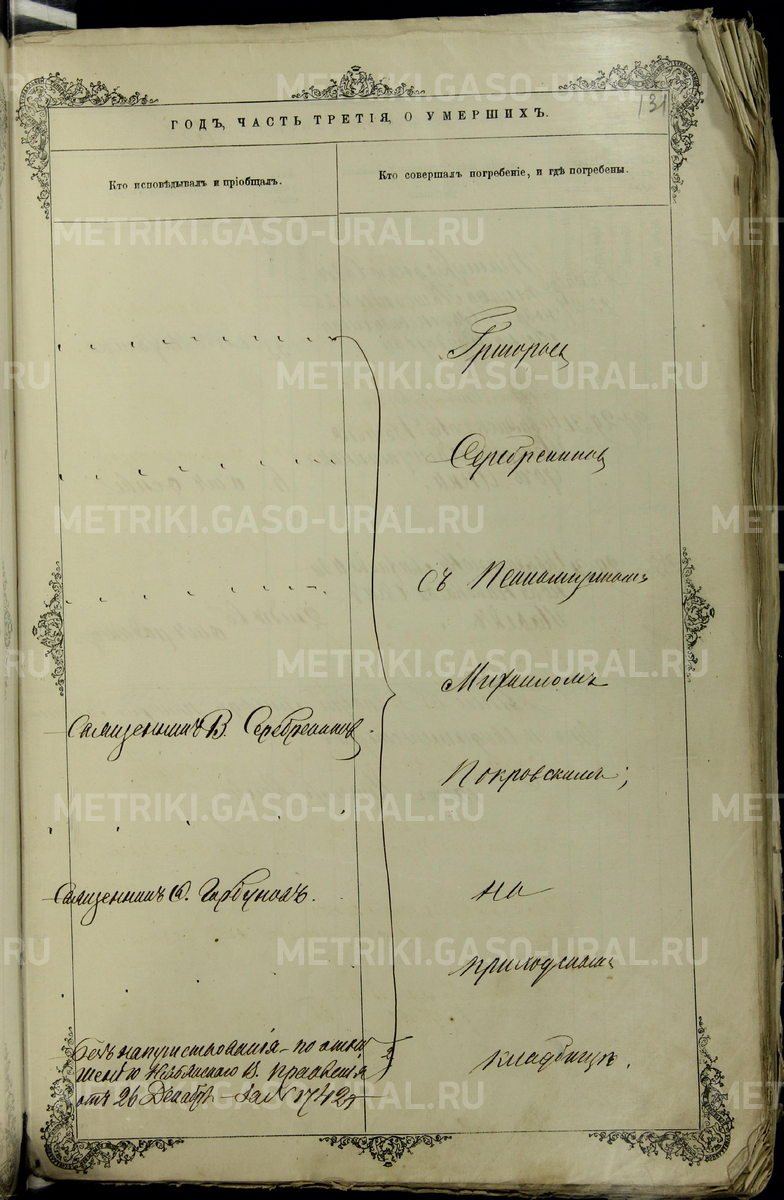 131
ГОДЪ, ЧАСТЬ ТРЕТІЯ, О УМЕРШИХЪ.
Кто исповѣдывалъ и пріобщалъ.
Священникъ В. Серебренниковъ.
Священникъ Горбуновъ.
Безъ напутствованія – по отно
шенію В. Правленія
отъ 26 Декабря – за №
Кто совершалъ погребеніе, и гдѣ погребены.
Григорьев
Серебренников
Съ
Михаиломъ
Покровскимъ;
на
приходскомъ
кладбищѣ.
METRIKI.GASO-URAL.RU